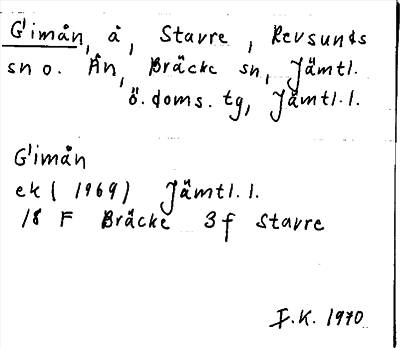 G'imån, å, Stavre, Revsunds
sn o. Ån, Bräcke sn, Jämtl.
ö. doms. tg, Jämtl. l.
G'imån
ek (1969) Jämtl. l.
18 F Bräcke 3f Stavre
F.K. 1970